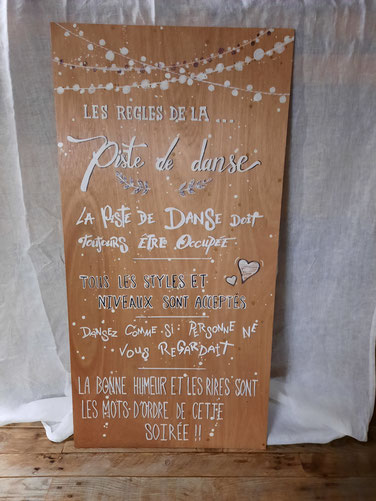 LES REGLES DE LA ...
Piste de danse
LA PISTE DE DANSE DOIT
TOUJOURS ÊTRE OCCUPÉE
TOUS LES STYLES ET
NIVEAUX SONT ACCEPTÉS
DANSEZ COMME SI PERSONNE NE
VOUS REGARDAIT
LA BONNE HUMEUR ET LES RIRES SONT
LES MOTS D'ORDRE DE CETTE
SOIRÉE !!